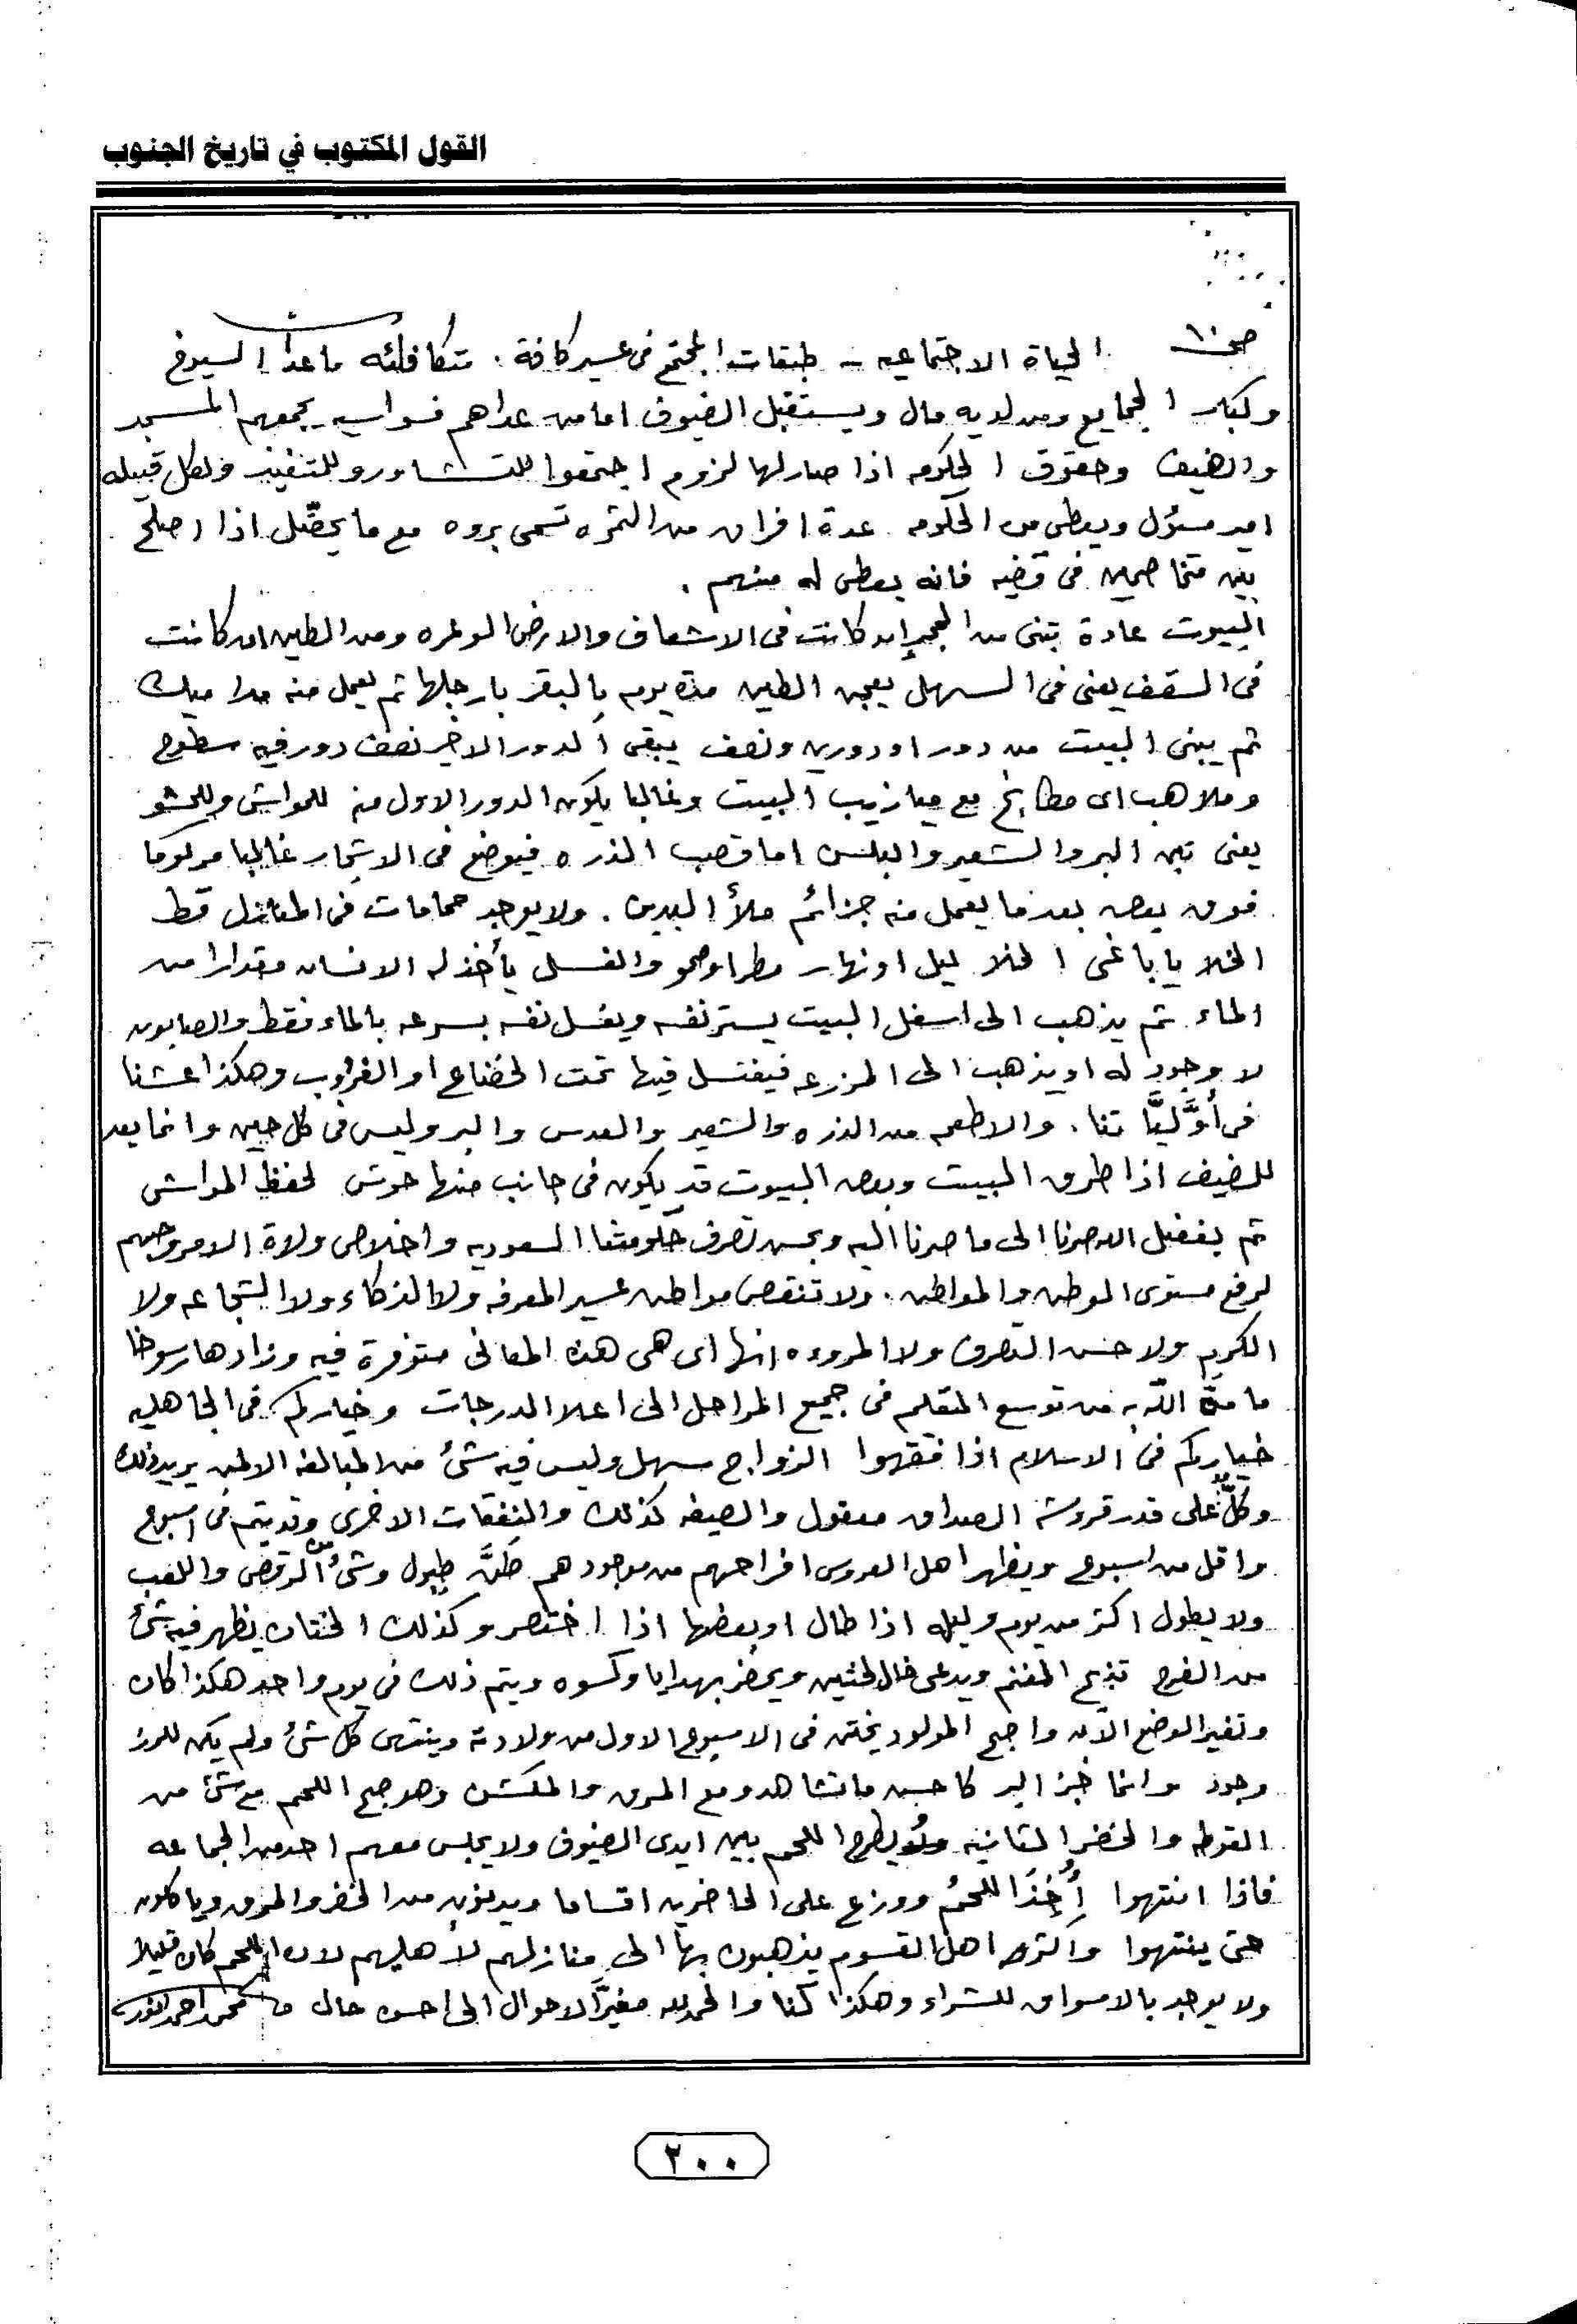 القول المكتوب في تاريخ الجنوب
صح ١٠ الحياة الاجتماعيه - طبقات المجتمع فى عسير كافة . متكافئه ماعدا الشيوخ
وكبار المجاميع ومن لديه مال ويستقبل الضيوف اما من عداهم فسواسيه يجمعهم المسجد
والضيف وحقوق الحكومه اذا صار لها لزوم اجتمعوا للتشاور وللتنفيذ ولكل قبيله
امير مسئول ويعطى من الحكومه عدة افراق من الثمره تسمى بروه مع ما يحصّل اذا اصلح
بين متخاصمين فى قضيه فانه يعطى له منهم .
البيوت عادة تبنى من الحجر إن كانت فى الاشعاف والارض الوعره ومن الطين ان كانت
فى السقف يعنى فى السهل يعجن الطين مدة يوم بالبقر بارجلها ثم يعمل منه مداميك
ثم يبنى البيت من دور او دورين ونصف يبقى الدور الاخر نصف دور فيه سطوح
وملاهب اى مطابخ مع ميازيب البيت وغالبا يكون الدور الاول منه للمواشى وللحشو
يعنى تبن البر والشعير والبلسن اما قصب الذره فيوضع فى الاشجار غالبا مركوما
فوق بعض بعدما يعمل منه جزائم ملأ اليدين . ولا يوجد حمامات فى المنازل قط
الخلا يا باغى الخلا ليل او نهار مطر او صحو والغسل يأخذ له الانسان مقدارا من
الماء ثم يذهب الى اسفل البيت يستر نفسه ويغسل نفسه بسرعه بالماء فقط والصابون
لا وجود له او يذهب الى المزرعه فيغتسل فيها تحت الخضاع او الغروب وهكذا عشنا
فى أوَّليَّاتنا . والاطعمه من الذره والشعير والعدس والبر وليس فى كل حين وانما يعد
للضيف اذا طرق البيت وبعض البيوت قد يكون فى جانب منها حوش لحفظ المواشى
ثم بفضل الله صرنا الى ما صرنا اليه وبحسن تصرف حكومتنا السعوديه واخلاص ولاة الامر وحبهم
لرفع مستوى الوطن والمواطن . ولا تنقص مواطن عسير المعرفه ولا الذكاء ولا الشجاعه ولا
الكرم ولا حسن التصرف ولا المروءه انها اى هى هذه المعانى متوفرة فيه وزادها رسوخا
ما منَّ الله به من توسع التعليم فى جميع المراحل الى اعلا الدرجات وخياركم فى الجاهليه
خياركم فى الاسلام اذا فقهوا الزواج سهل وليس فيه شئ من المبالغه الا لمن يريد ذلك
وكلٌّ على قدر قروشه الصداق معقول والضيفه كذلك والنفقات الاخرى وقد يتم فى اسبوع
واقل من اسبوع ويظهر اهل العروس افراحهم من موجودهم طبول وشئ من الرقص واللعب
ولا يطول اكثر من يوم وليله اذا طال او بعضها اذا اختصر وكذلك الختان يظهر فيه شئ
من الفرح تذبح الغنم ويدعى خال الختين ويحضر بهدايا وكسوه ويتم ذلك فى يوم واحد هكذا كان
وتغير الوضع الآن واصبح المولود يختن فى الاسبوع الاول من ولادته وينتهى كل شئ ولم يكن للرز
وجود وانما خبز البر كاحسن ما تشاهد مع المرق والمكشن وهو مع اللحم مع شئ من
القوطه والخضر الثانيه ويطرح اللحم بين ايدى الضيوف ولا يجلس معهم احد من الجماعه
فاذا انتهوا أُخذَ اللحمُ ووزع على الحاضرين اقساما ويدنون من الخضر والمرق وياكلون
حتى ينتهوا واكثر اهل القسوم يذهبون بها الى منازلهم لأهليهم لان اللحم كان قليلا
ولا يوجد بالاسواق للشراء وهكذا كنا والحمد لله مغيَّر الاحوال الى احسن حال محمد احمد انور
٢٠٠